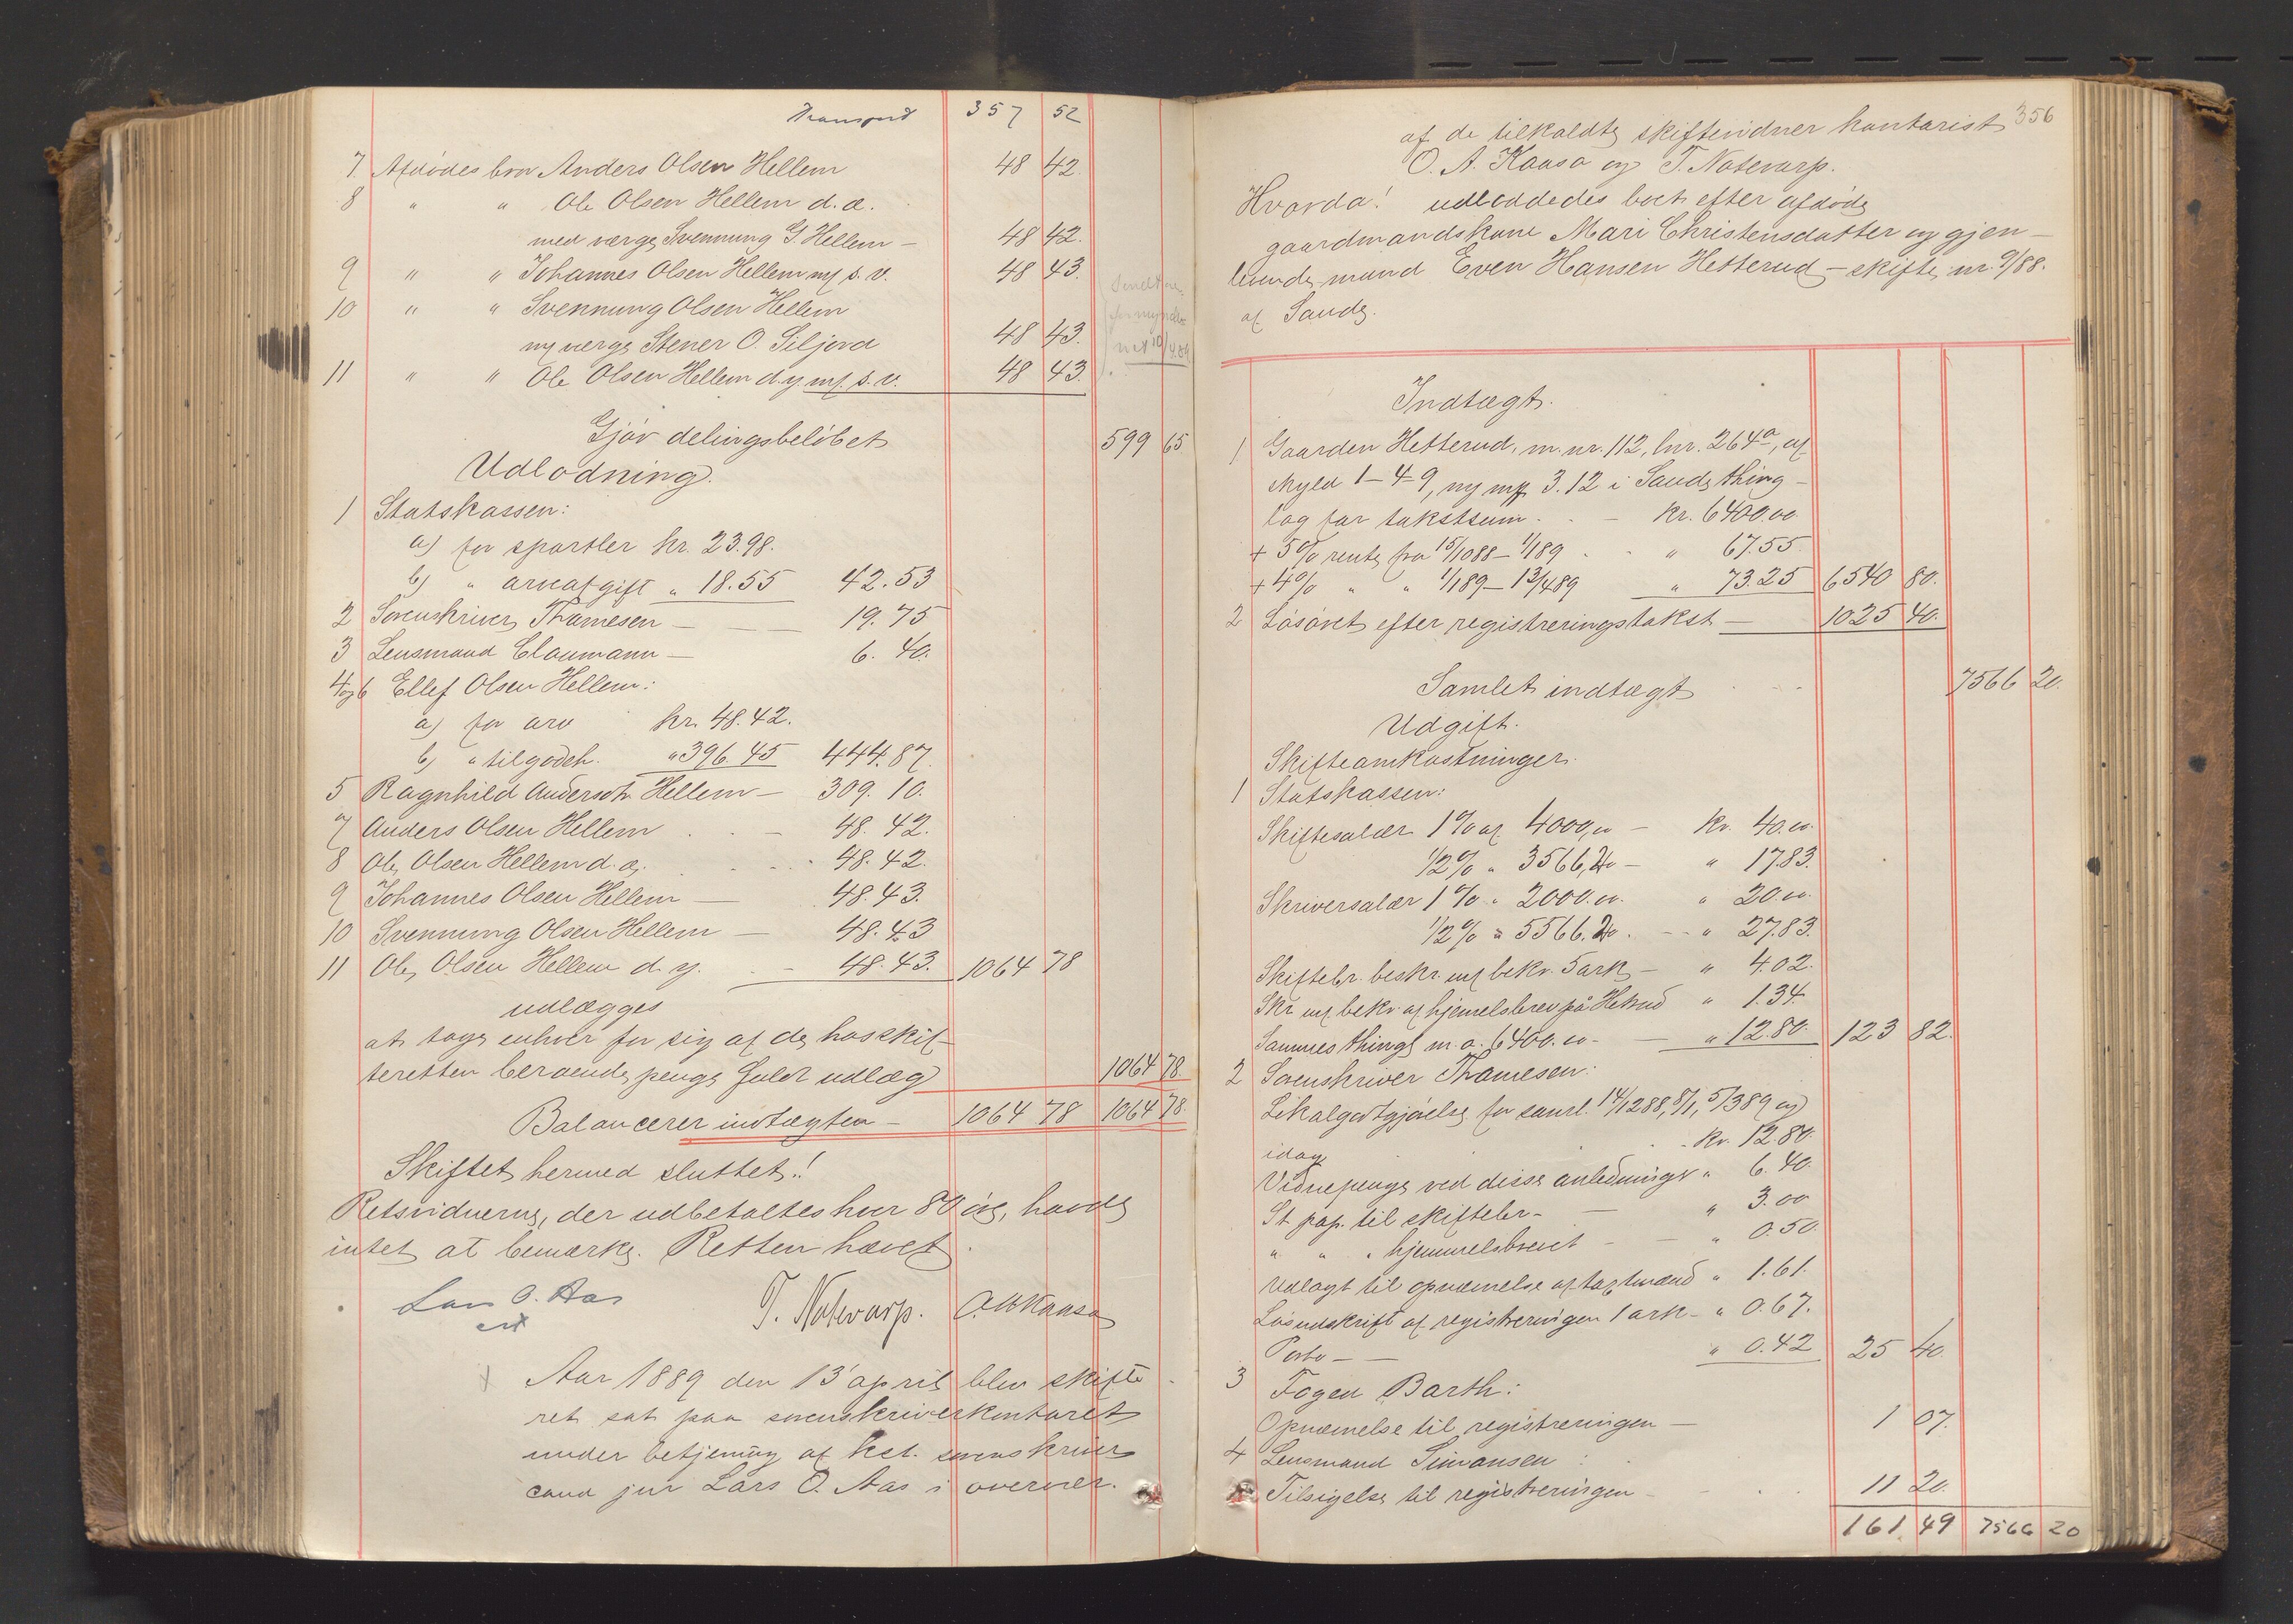 Transport 357 52
7 Afdødes bror Anders Olsen Hellem 48 42.
8 " " Ole Olsen Hellem d. æ.
med værge Svennung G. Hellem - 48 42.
9 " " Johannes Olsen Hellem mf s. v. 48 43.
10 " " Svennung Olsen Hellem
mf værge Stener O. Seljord 48 43.
11 " " Ole Olsen Hellem d. y. mf. s. v. 48 43.
Gjør delingsbeløbet 599 65
Udlodning.
1 Statskassen:
a) for sportler kr. 23.98.
b) " arveafgift " 18.55 42.53
2 Sorenskriver Thomesen - 19.75
3 Lensmand Claumann - 6.40.
4 og 6 Ellef Olsen Hellem:
a) for arv kr. 48.42.
b) " tilgodeh. " 396.45 444.87.
5 Ragnhild Andersdtr Hellem - 309.10.
7 Anders Olsen Hellem - 48.42.
8 Ole Olsen Hellem d. æ. 48.42.
9 Johannes Olsen Hellem - 48.43.
10 Svennung Olsen Hellem - 48.43
11 Ole Olsen Hellem d. y. - 48.43. 1064 78
udlægges
at tage enhver for sig af de hos skif-
teretten beroende penge fuldt udlæg 1064 78.
Balancerer indtægten - 1064 78 1064 78.
Skiftet hermed sluttet!
Retsvidnerne, der udbetaltes hver 80 øre, havde
intet at bemærke. Retten hævet.
Lars O. Aas
cst
T. Notevarp. O. A. Kaasa
Aar 1889 den 13' april blev skifte-
ret sat paa sorenskriverkontoret
under betjening af kst. sorenskriver
cand jur Lars O. Aas i overvær.
356
af de tilkaldte skiftevidner kontorist
O. A. Kaasa og T. Notevarp.
Hvorda! udloddedes boet efter afdøde
gaardmandskone Mari Christensdatter og gjen-
levende mand Even Hansen Hetterud - skifte nr. 9/88.
af Saude.
Indtægt.
1 Gaarden Hetterud, m. nr. 112, lnr. 264a, af
skyld 1-4-9, ny mf 3.12 i Saude thing-
lag for takstsum - kr. 6400.00
+ 5% rente fra 15/1088 - 1/189 " 67.55
+ 4% " " 1/189 - 13/489 " 73.25 6540 80.
2 Løsøret efter registreringstakst - 1025 40.
Samlet indtægt 7566 20.
Udgift.
Skifteomkostninger.
1 Statskassen:
Skiftesalær 1% af 4000,00 - kr. 40.00.
1/2% " 3566,20 - " 17.83.
Skriversalær 1% " 2000.00. " 20.00.
1/2% " 5566.20. - " 27.83.
Skiftebr. beskr. mf bekr. 5 ark - " 4.02.
Skr mf bekr. af hjemmelsbrev på Hetterud " 1.34.
Sammes thingl m. a. 6400.00 - " 12.80. 123 82.
2 Sorenskriver Thomesen:
Lokalgodtgjørelse for saml. 14/1288, 8/1, 5/389 og
idag - kr. 12.80.
Vidnepenge ved disse anledninger " 6.40.
St. pap. til skiftebr. - " 3.00
" " " hjemmelsbrevet - " 0.50.
Udlagt til opnævnelse af taxtmænd " 1.61.
Løs udskrift af registreringen 1 ark - " 0.67.
Porto - " 0.42 25 40.
3 Foged Barth:
Opnævnelse til registreringen - 1 07.
4 Lensmand Simonsen:
Tilsigelse til registreringen - 11 20.
161 49 7566 20